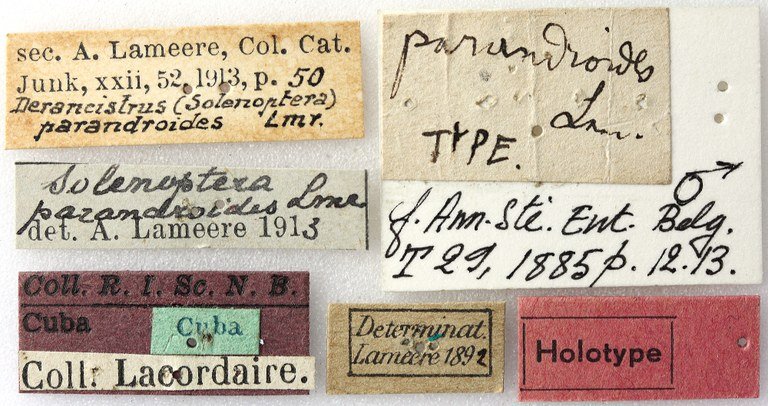 sec. A. Lameere, Col. Cat.
Junk, xxii, 52, 1913, p. 50
Derancistrus (Solenoptera)
parandroides Lmr.
parandroides
Lmr.
TYPE.
♂
Solenoptera
parandroides Lmre
det. A. Lameere 1913
f. Ann. Sté. Ent. Belg.
T 29, 1885 p. 12.13.
Coll. R. I. Sc. N. B.
Cuba
Cuba
Coll: Lacordaire.
Determinat.
Lameere 1892
Holotype